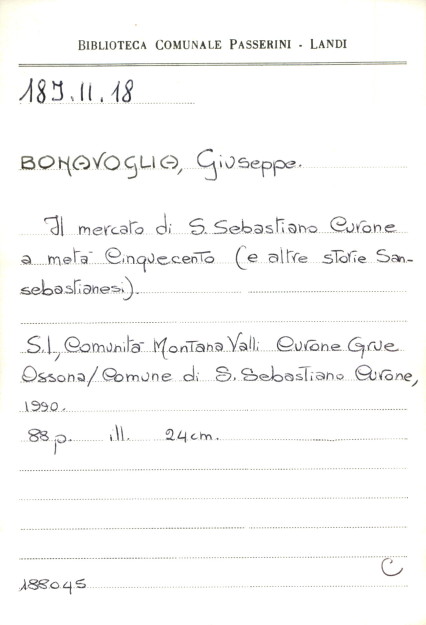 BIBLIOTECA COMUNALE PASSERINI - LANDI
18J.II.18
BONAVOGLIA, Giuseppe.
Il mercato di S. Sebastiano Curone
a metà Cinquecento (e altre storie San-
sebastianesi).
S.l, Comunità Montana Valli Curone Grue
Ossona/Comune di S. Sebastiano Curone,
1990.
88p. ill. 24cm.
C
188045